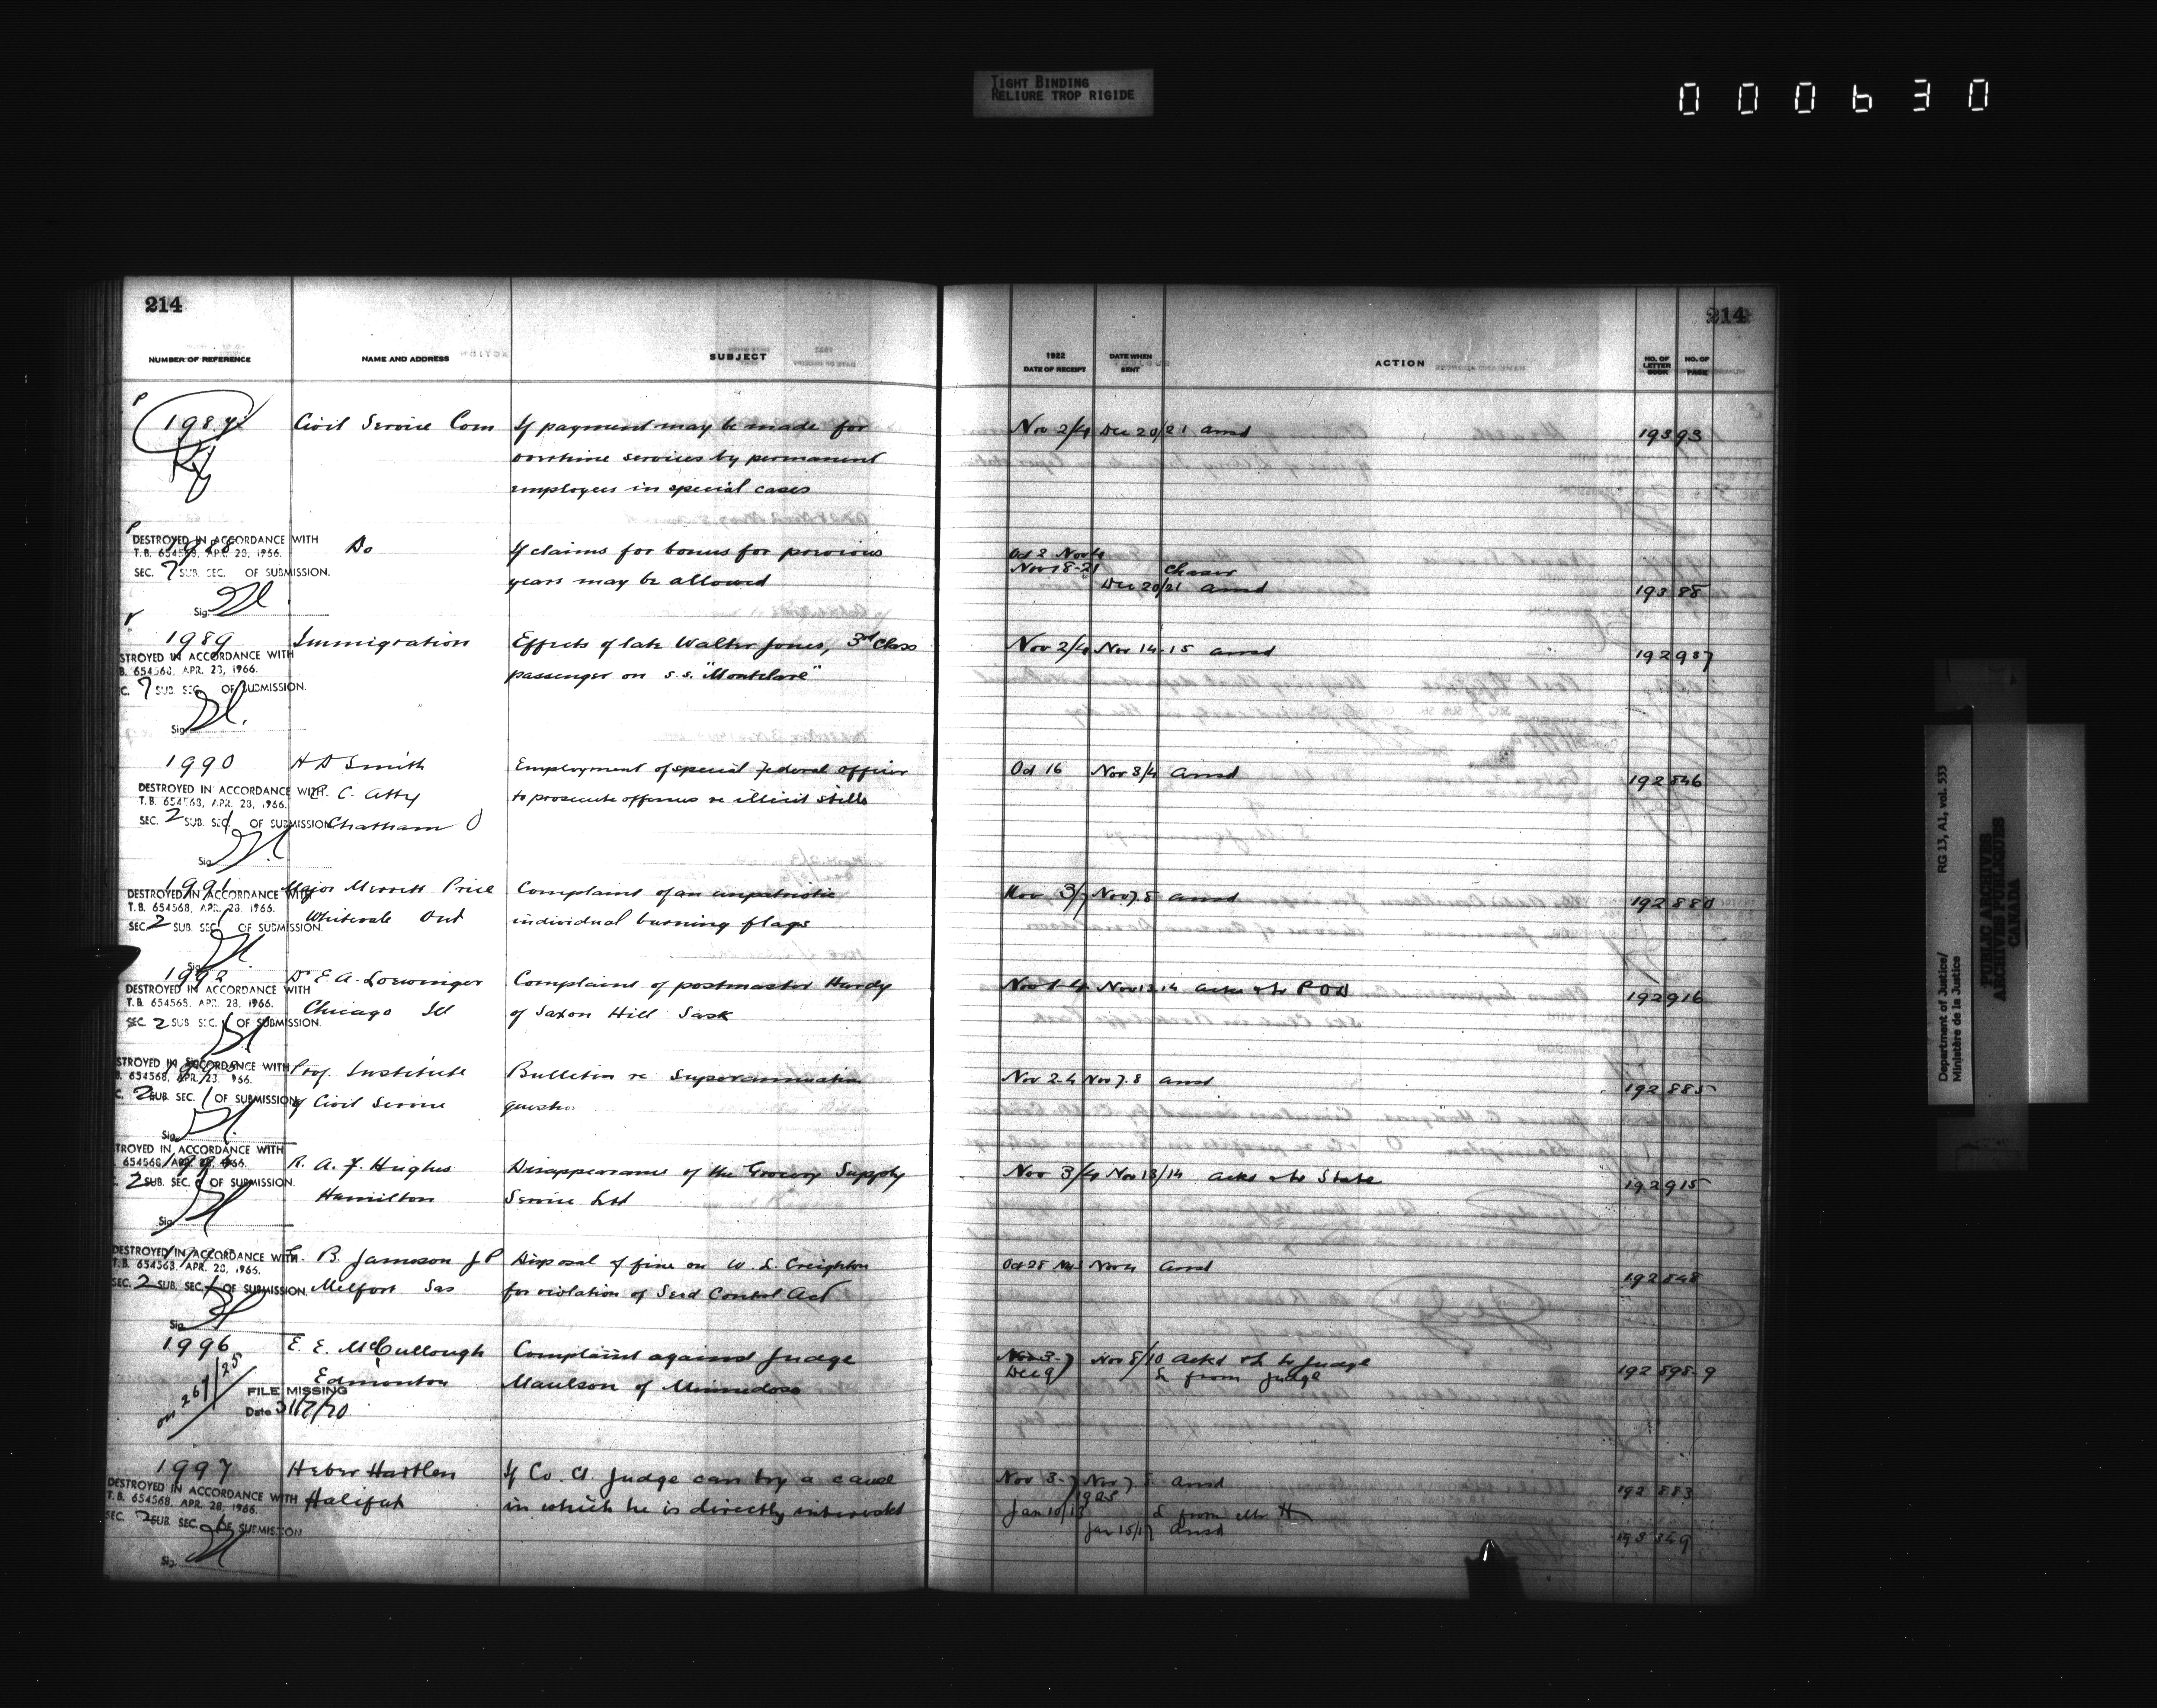 TIGHT BINDING
RELIURE TROP RIGIDE
000630
214
214
NUMBER OF REFERENCE NAME AND ADDRESS SUBJECT 1922 DATE OF RECEIPT DATE WHEN SENT ACTION NO. OF LETTER BOOK NO. OF PAGE
1987 Civil Service Com If payment may be made for Nov 2/4 Dec 20/21 ansd 193 93
overtime services by permanent
employees in special cases
DESTROYED IN ACCORDANCE WITH
T.B. 654568, APR. 28, 1966.
SEC. 7 SUB. SEC. OF SUBMISSION.
Sig.
1988 Do If claims for bonus for previous Oct 2 Nov 4
years may be allowed Nov 18-21 Chaser
Dec 20/21 ansd 193 88
1989 Immigration Effects of late Walter Jones, 3rd Class Nov 2/4 Nov 14-15 ansd 192 937
passenger on s.s. "Montclare"
STROYED IN ACCORDANCE WITH
B. 654568, APR. 28, 1966.
C. 7 SUB. SEC. OF SUBMISSION.
Sig.
1990 H D Smith Employment of special Federal officer Oct 16 Nov 3/4 ansd 192 846
C. Atty to prosecute offences re illicit stills
Chatham O
DESTROYED IN ACCORDANCE WITH
T.B. 654568, APR. 28, 1966.
SEC. 2 SUB. SEC. 1 OF SUBMISSION
Sig.
1991 Major Merritt Price Complaint of an unpatriotic Nov 3/7 Nov 7.8 ansd 192 880
Whitevale Ont individual burning flags
DESTROYED IN ACCORDANCE WITH
T.B. 654568, APR. 28, 1966.
SEC. 2 SUB. SEC. 1 OF SUBMISSION.
Sig.
1992 Dr E. A. Loewinger Complaint of postmaster Hardy Nov 1-4 Nov 13 14 ackd & to POD 192 916
Chicago Ill of Saxon Hill Sask
DESTROYED IN ACCORDANCE WITH
T.B. 654568, APR. 28, 1966.
SEC. 2 SUB. SEC. 1 OF SUBMISSION.
Prof. Institute Bulletin re Superannuation Nov 2-4 Nov 7.8 ansd 192 885
of Civil Service question
STROYED IN ACCORDANCE WITH
654568, APR. 23, 1966.
C. 2 SUB. SEC. 1 OF SUBMISSION
Sig.
1994 R. A. F. Hughes Disappearance of the Grocery Supply Nov 3/4 Nov 13/14 ackd & to State 192 915
Hamilton Service Ltd
TROYED IN ACCORDANCE WITH
654568, APR. 28, 1966.
2 SUB. SEC. 1 OF SUBMISSION.
Sig.
B. Jameson J P Disposal of fine on W. L. Creighton Oct 28 Nov 4 ansd 192 848
Melfort Sas for violation of Seed Control Act
DESTROYED IN ACCORDANCE WITH
T.B. 654568, APR. 28, 1966.
SEC. 2 SUB. SEC. 1 OF SUBMISSION.
Sig.
1996 E. E. McCullough Complaint against Judge Nov 3-7 Nov 8/10 ackd & L to Judge 192 898-9
Edmonton Maulson of Minnedosa Dec 9 L from Judge
on 267/25
FILE MISSING
Date 31/7/70
1997 Heber Hartlen If Co. Ct. Judge can try a cause Nov 3-7 Nov 7.8 ansd 192 883
Halifax in which he is directly interested 1925
Jan 10/13 L from Mr H
Jan 15/17 ansd 193 349
DESTROYED IN ACCORDANCE WITH
T.B. 654568, APR. 28, 1966.
SEC. 2 SUB. SEC. 1 OF SUBMISSION
Sig.
Department of Justice/
Ministère de la Justice
RG 13, A1, vol. 533
PUBLIC ARCHIVES
ARCHIVES PUBLIQUES
CANADA